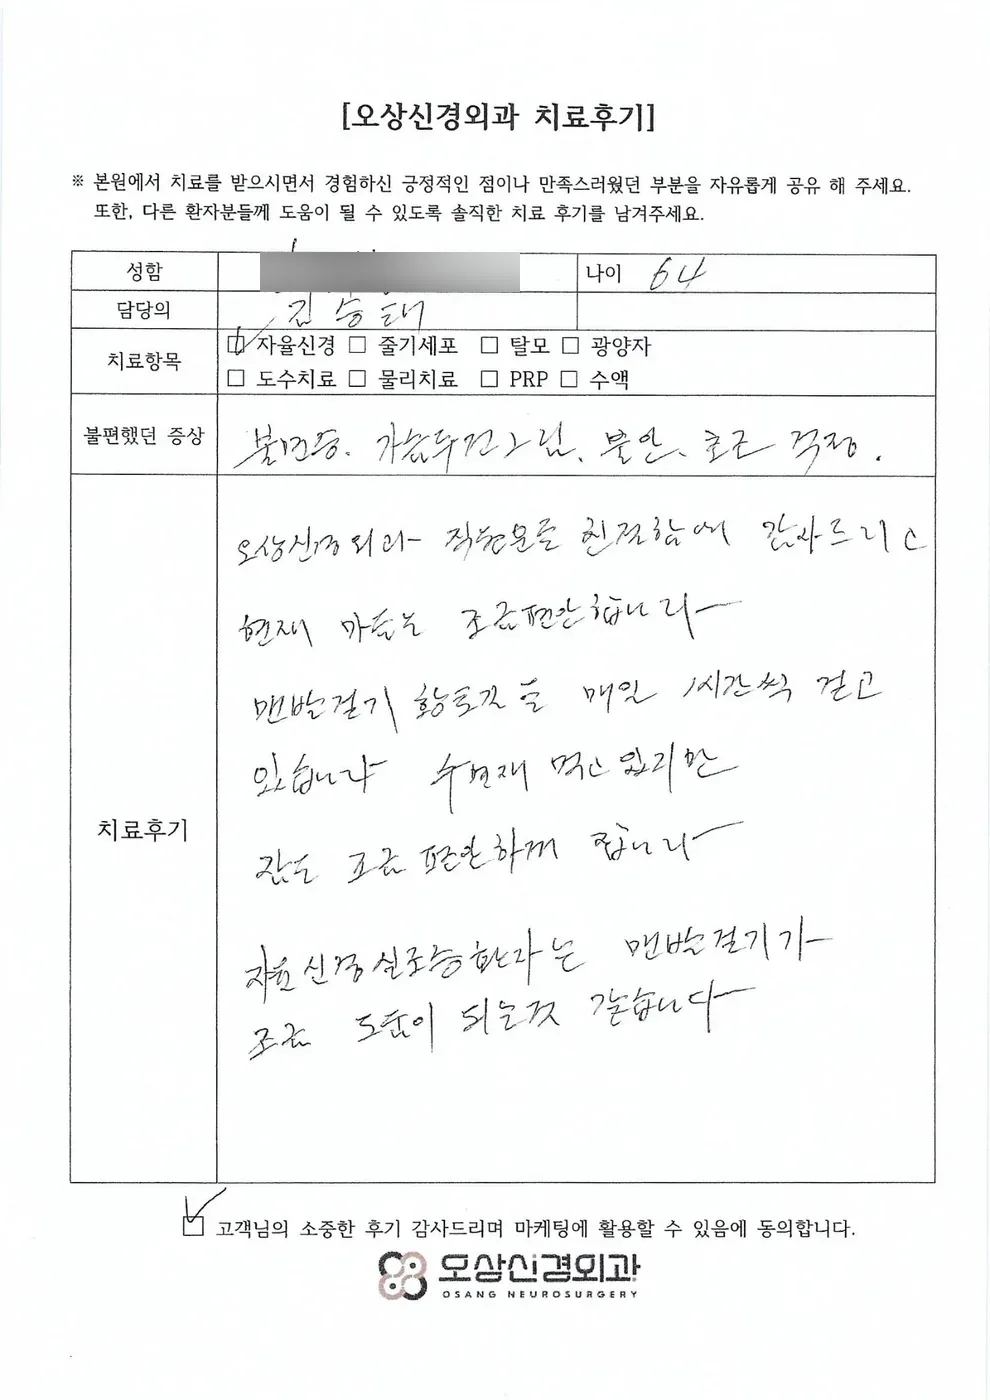 [오상신경외과 치료후기]
※ 본원에서 치료를 받으시면서 경험하신 긍정적인 점이나 만족스러웠던 부분을 자유롭게 공유 해 주세요.
또한, 다른 환자분들께 도움이 될 수 있도록 솔직한 치료 후기를 남겨주세요.
성함 나이 64
담당의 김승태
치료항목 ☑ 자율신경 □ 줄기세포 □ 탈모 □ 광양자
□ 도수치료 □ 물리치료 □ PRP □ 수액
불편했던 증상 불면증. 가슴두건그림. 불안. 초조 걱정.
오상신경외과 직원분들 친절함에 감사드리고
현재 마음는 조금편안합니다
맨발걷기 황토길을 매일 1시간씩 걷고
있습니다 먹고 있지만
치료후기
잠도 조금 편안하게 잡니다
자율신경실조증환자는 맨발걷기가
조금 도움이 되는것 같습니다
☑ 고객님의 소중한 후기 감사드리며 마케팅에 활용할 수 있음에 동의합니다.
오상신경외과
OSANG NEUROSURGERY